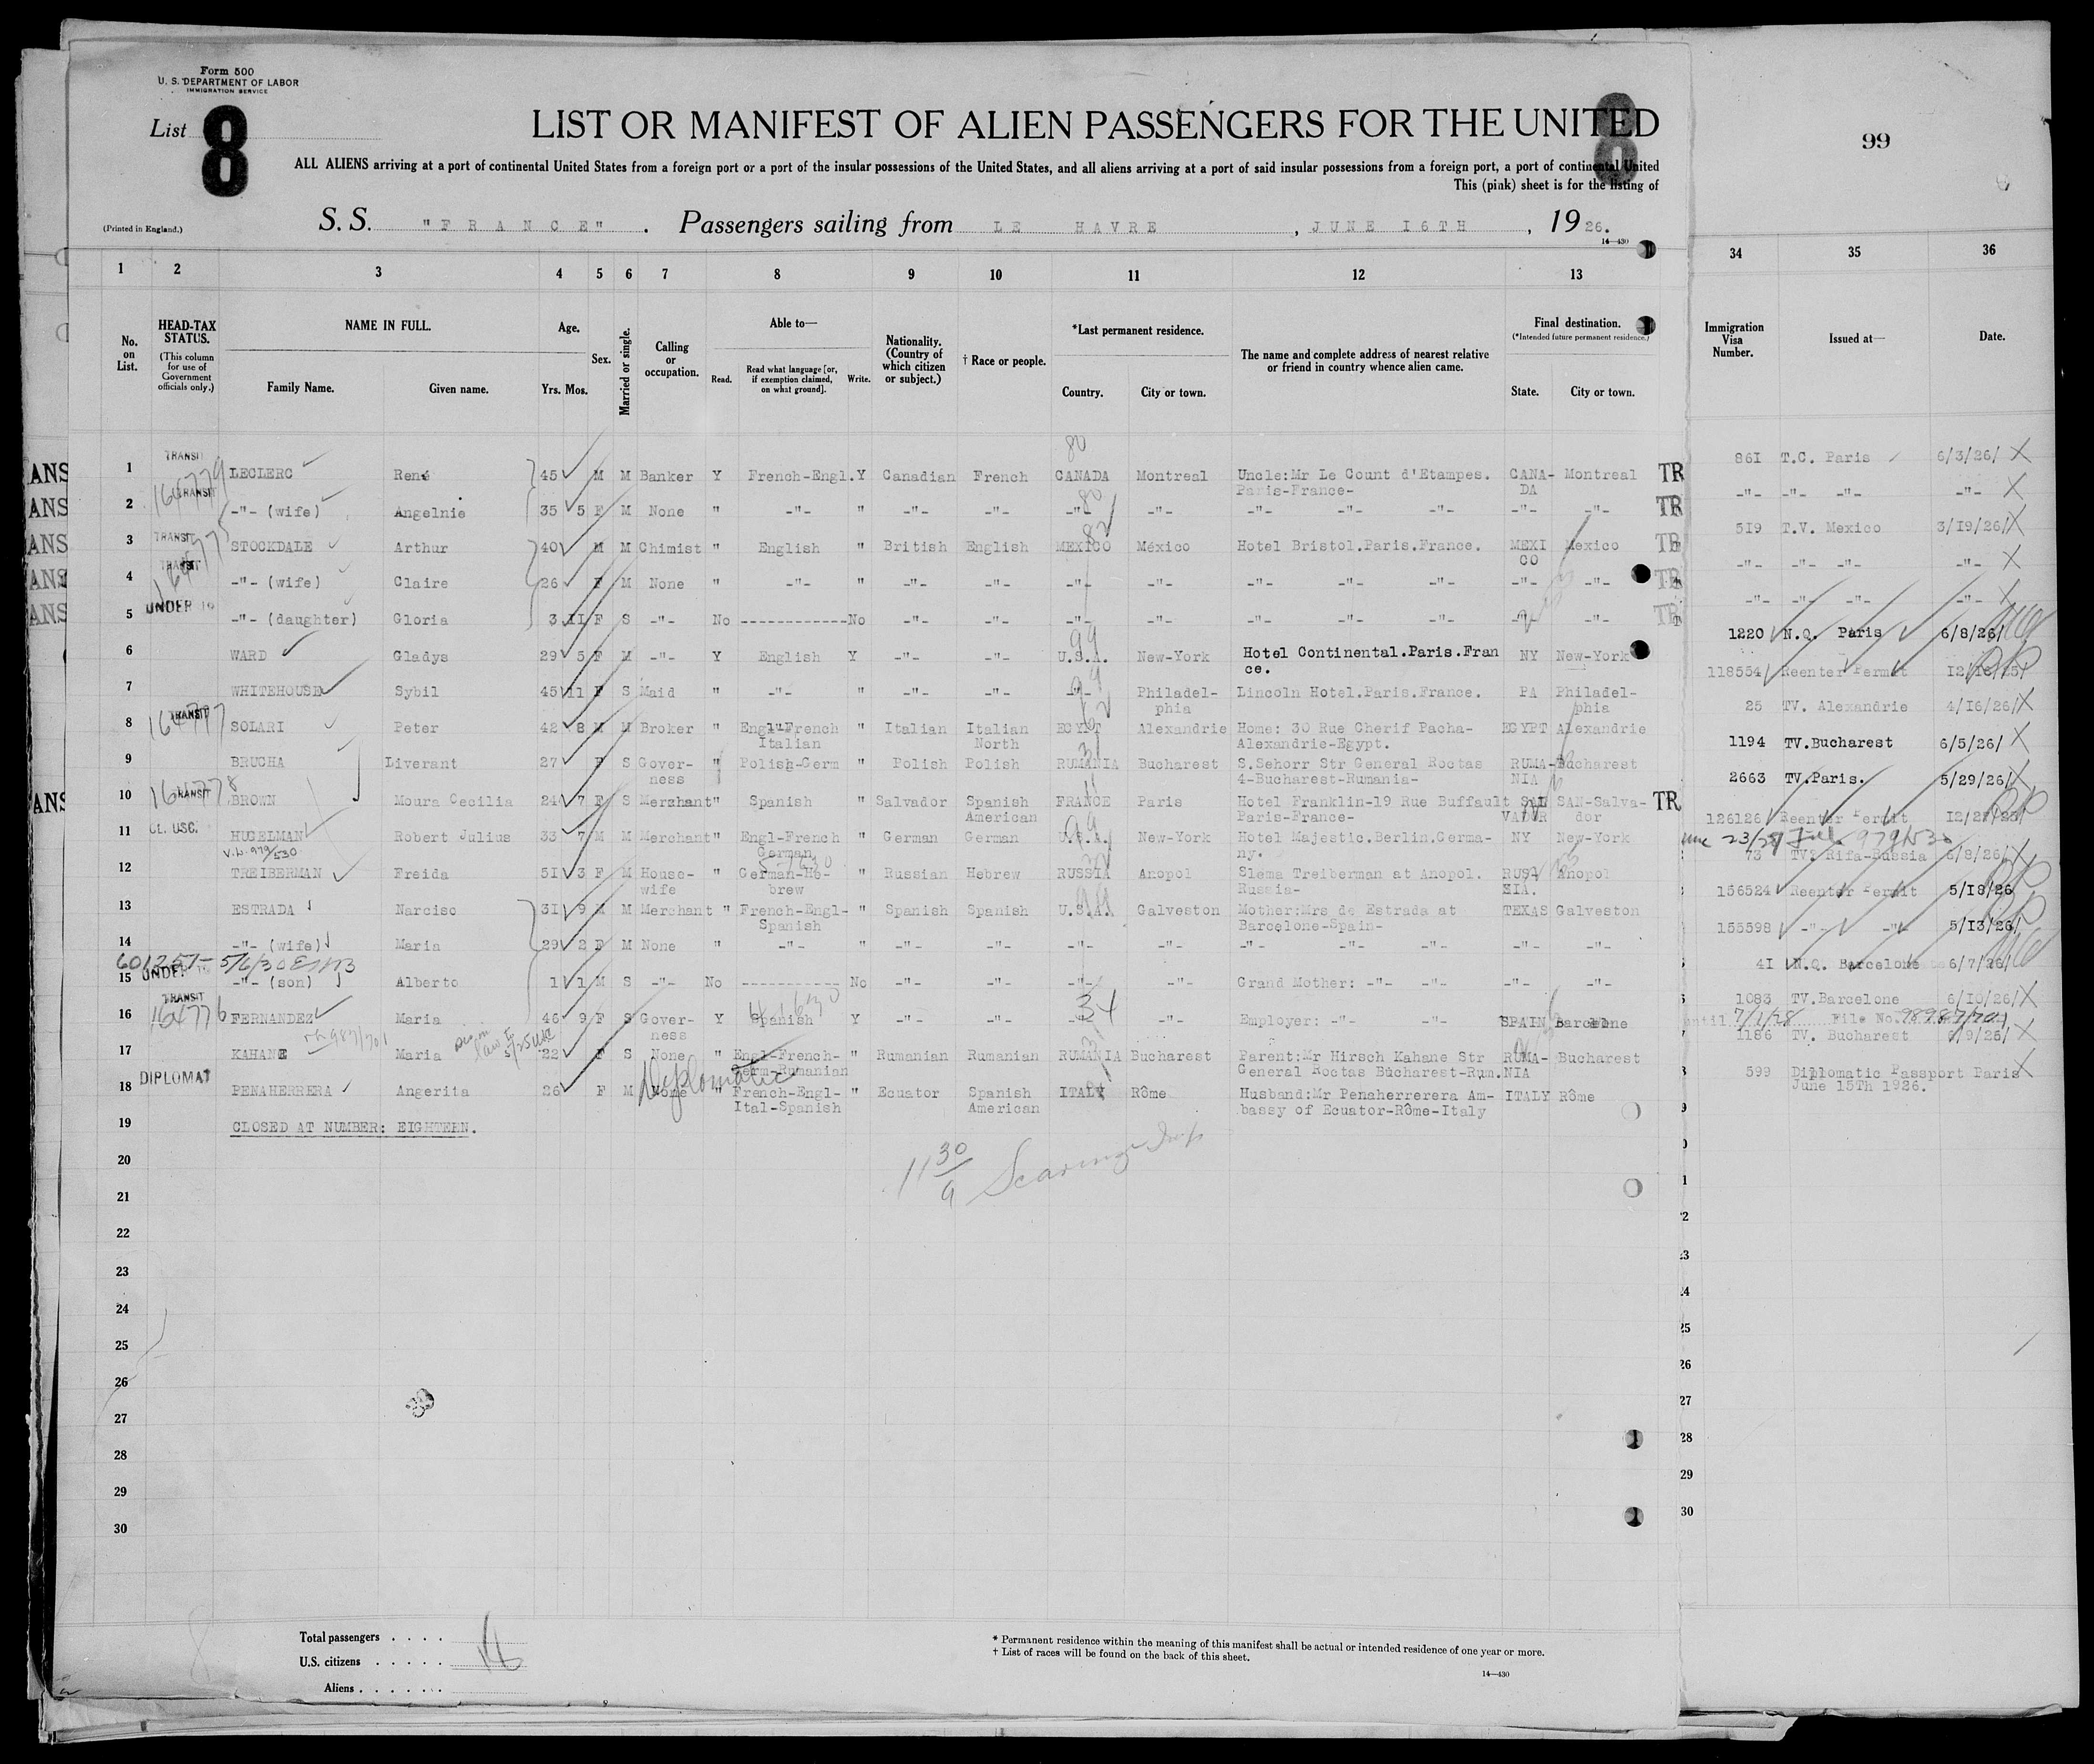 Form 500
U. S. DEPARTMENT OF LABOR
IMMIGRATION SERVICE
List 8
LIST OR MANIFEST OF ALIEN PASSENGERS FOR THE UNITED
99
ALL ALIENS arriving at a port of continental United States from a foreign port or a port of the insular possessions of the United States, and all aliens arriving at a port of said insular possessions from a foreign port, a port of continental United
This (pink) sheet is for the listing of
(Printed in England.)
S. S. "FRANCE". Passengers sailing from LE HAVRE, JUNE 16TH, 1926.
14—430
1 2 3 4 5 6 7 8 9 10 11 12 13 34 35 36
No. on List.
HEAD-TAX STATUS.
(This column for use of Government officials only.)
NAME IN FULL.
Family Name. Given name.
Age.
Yrs. Mos.
Sex.
Married or single.
Calling or occupation.
Able to—
Read. Read what language [or, if exemption claimed, on what ground]. Write.
Nationality. (Country of which citizen or subject.)
† Race or people.
*Last permanent residence.
Country. City or town.
The name and complete address of nearest relative or friend in country whence alien came.
Final destination.
(*Intended future permanent residence.)
State. City or town.
Immigration Visa Number.
Issued at—
Date.
ANS 1 TRANSIT LECLERC René 45 M M Banker Y French-Engl. Y Canadian French CANADA Montreal Uncle:Mr Le Count d'Etampes. CANA- Montreal TR 861 T.C. Paris 6/3/26/ X
Paris-France- DA
ANS 2 TRANSIT -"- (wife) Angelnie 35 5 F M None " -"- " -"- -"- -"- -"- -"- -"- -"- -"- -"- TR -"- -"- -"- -"- X
164779
ANS 3 TRANSIT STOCKDALE Arthur 40 M M Chimist " English " British English MEXICO México Hotel Bristol.Paris.France. MEXI Mexico TR 519 T.V. Mexico 3/19/26/ X
CO
ANS 4 TRANSIT -"- (wife) Claire 26 F M None " -"- " -"- -"- -"- -"- -"- -"- -"- -"- -"- TR -"- -"- -"- -"- X
ANS 5 UNDER 16 -"- (daughter) Gloria 3 11 F S -"- No ------------No -"- -"- -"- -"- -"- -"- -"- -"- -"- TR -"- -"- -"- -"- X
6 WARD Gladys 29 5 F M -"- Y English Y -"- -"- U.S.A. New-York Hotel Continental.Paris.Fran NY New-York 1220 N.Q. Paris 6/8/26/
ce.
7 WHITEHOUSE Sybil 45 11 F S Maid " -"- " -"- -"- -"- Philadel- Lincoln Hotel.Paris.France. PA Philadel- 118554 Reenter Permit
phia phia
8 TRANSIT SOLARI Peter 42 8 M M Broker " Engl-French " Italian Italian EGYPT Alexandrie Home: 30 Rue Cherif Pacha- EGYPT Alexandrie 25 TV. Alexandrie 4/16/26/ X
164777 Italian North Alexandrie-Egypt.
9 BRUCHA Liverant 27 F S Gover- " Polish-Germ " Polish Polish RUMANIA Bucharest S.Sehorr Str General Roctas RUMA- Bucharest 1194 TV.Bucharest 6/5/26/ X
ness 4-Bucharest-Rumania- NIA
ANS 10 TRANSIT BROWN Moura Cecilia 24 7 F S Merchant " Spanish " Salvador Spanish FRANCE Paris Hotel Franklin-19 Rue Buffault SAL SAN-Salva- TR 2663 TV.Paris. 5/29/26/ X
164778 American Paris-France- VADOR dor
11 CL. USC. HUGELMAN Robert Julius 33 7 M M Merchant " Engl-French " German German U.S.A. New-York Hotel Majestic.Berlin.Germa- NY New-York 126126 Reenter Permit
V.L. 979/530 German ny.
12 TREIBERMAN Freida 51 3 F M House- " German-He- " Russian Hebrew RUSSIA Anopol Slema Treiberman at Anopol. RUS- Anopol 73 TV. Rifa-Russia 6/8/26/ X
wife brew Russia- SIA.
13 ESTRADA Narciso 31 9 M M Merchant " French-Engl- " Spanish Spanish U.S.A. Galveston Mother:Mrs de Estrada at TEXAS Galveston 156524 Reenter Permit 5/18/26
Spanish Barcelone-Spain-
14 -"- (wife) Maria 29 2 F M None " -"- " -"- -"- -"- -"- -"- -"- -"- -"- -"- 155598 -"- -"- 5/13/26/
5/6/30
15 UNDER 16 -"- (son) Alberto 1 1 M S -"- No ----------- No -"- -"- -"- -"- Grand Mother: -"- -"- -"- -"- 41 N.Q. Barcelone 6/7/26/
16 TRANSIT FERNANDEZ Maria 46 9 F S Gover- Y Spanish Y -"- -"- -"- -"- Employer: -"- -"- SPAIN Barcelone 1083 TV.Barcelone 6/10/26/ X
164776 ness 34 7/1/28 File No. 98987/701
17 KAHANE Maria 22 F S None " Engl-French- " Rumanian Rumanian RUMANIA Bucharest Parent:Mr Hirsch Kahane Str RUMA- Bucharest 1186 TV. Bucharest 6/9/26/ X
Germ-Rumanian General Roctas Bucharest-Rum. NIA
18 DIPLOMAT PENAHERRERA Angerita 26 F M None " French-Engl- " Ecuator Spanish ITALY Rôme Husband:Mr Penaherrerera Am- ITALY Rôme 599 Diplomatic Passport Paris X
Diplomatic Ital-Spanish American bassy of Ecuator-Rôme-Italy June 15Th 1926.
19 CLOSED AT NUMBER: EIGHTEEN.
20
21
22
23
24
25
26
27
28
29
30
Total passengers . . . .
U.S. citizens . . . . .
Aliens . . . . . .
* Permanent residence within the meaning of this manifest shall be actual or intended residence of one year or more.
† List of races will be found on the back of this sheet.
14—430